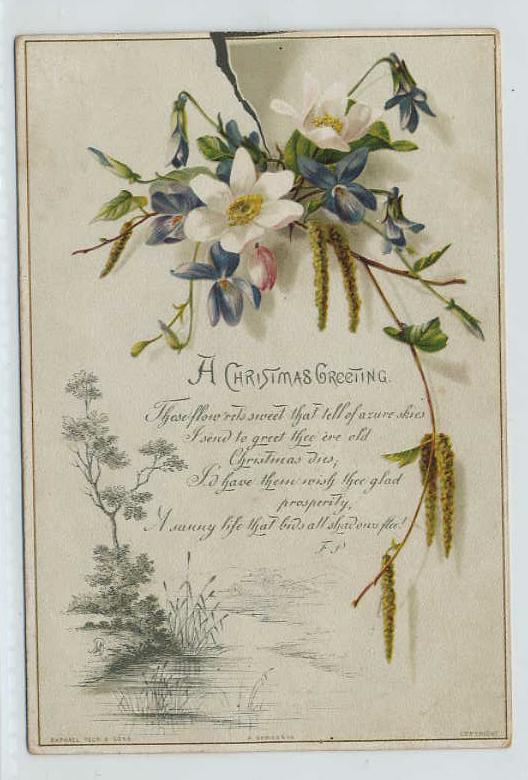 A CHRISTMAS GREETING.
These flow'rets sweet that tell of azure skies
I send to greet thee ere old
Christmas dies;
I'd have them wish thee glad
prosperity,
A sunny life that bids all shadows flee!
F. P
RAPHAEL TUCK & SONS
COPYRIGHT